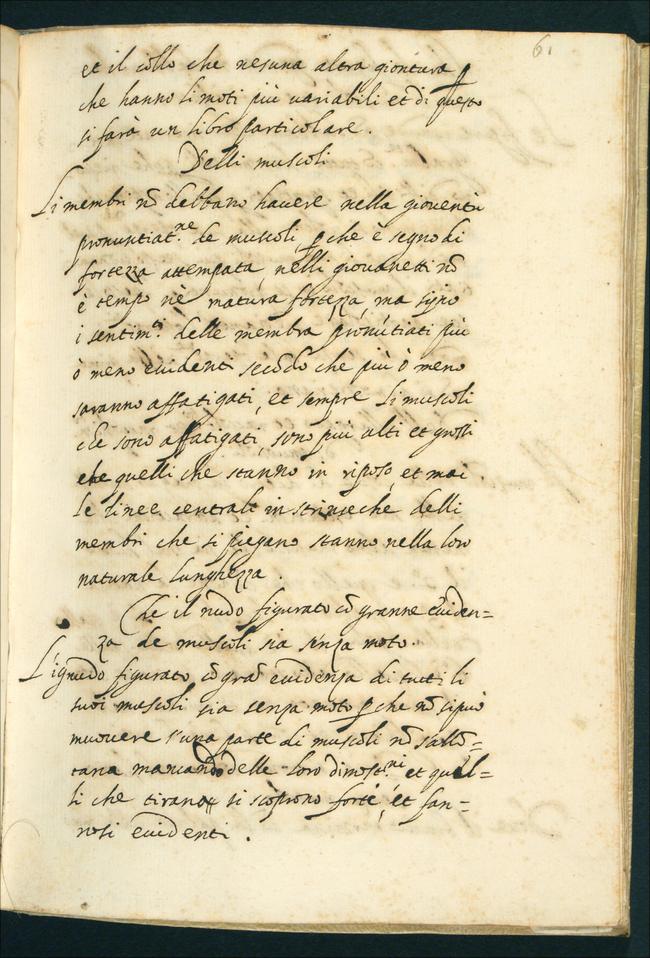 61
et il collo che nesuna altra giontura p
che hanno li moti più uariabili et di questo
si farà un libro particolare.
Delli muscoli
Li membri nõ debbano hauere nella giouentù
pronuntiat.ne de muscoli, p che è segno di
fortezza attempata, nelli giouanetti nõ
è tempo nè matura fortezza, ma sijno
i sentim.ti delle membra pronũtiati più
ò meno euidenti secõdo che più ò meno
saranno affatigati, et sempre li muscoli
che sono affatigati, sono più alti et grossi
che quelli che stanno in riposo, et mai
le linee centrale instrinseche delli
membri che si piegano stanno nella loro
naturale lunghezza.
Che il nudo figurato cõ granne euiden=
za de muscoli sia senza moto.
L'ignudo figurato cõ grãd euidenza di tutti li
suoi muscoli sia senza moto p che nõ si può
muouere s'una parte di muscoli nõ s'allõ=
tana mancando delle loro dimost.ni et quel=
li che tirano si scoprono forte, et fan=
nosi euidenti.